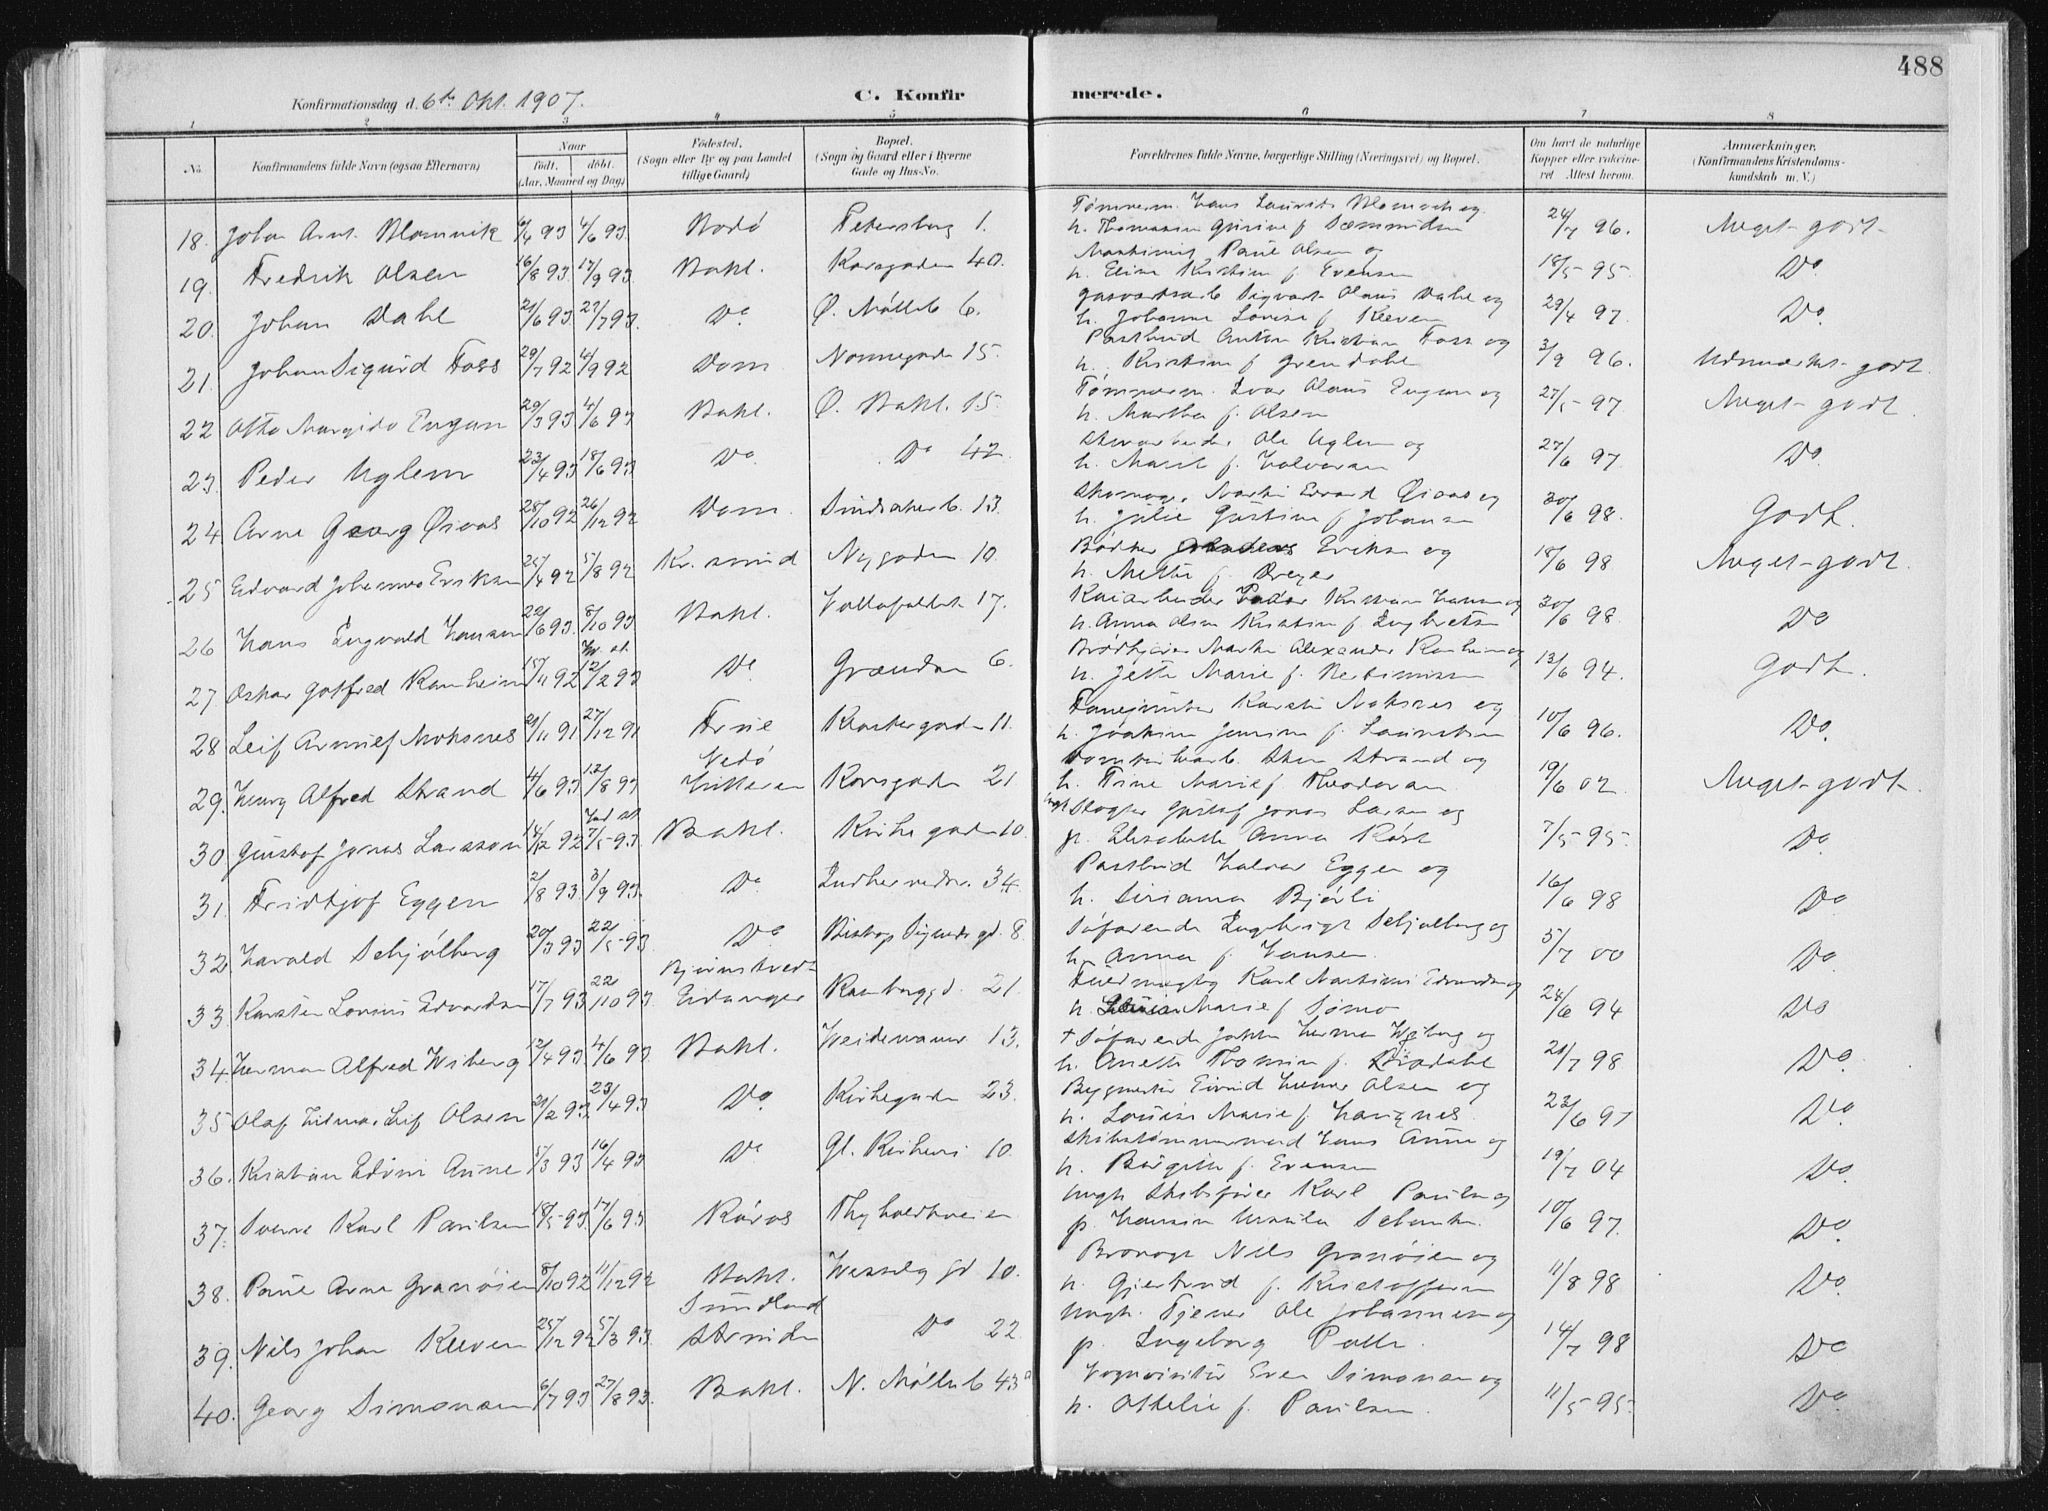 488
Konfirmationsdag d. 6te Okt. 1907.
C. Konfir
merede.
1 2 3 4 5 6 7 8
No. Konfirmandens fulde Navn (ogsaa Efternavn) Naar født. døbt. (Aar, Maaned og Dag) Fødested. (Sogn eller By og paa Landet tillige Gaard) Bopæl. (Sogn og Gaard eller i Byerne Gade og Hus-No. Forældrenes fulde Navne, borgerlige Stilling (Næringsvei) og Bopæl. Om havt de naturlige Kopper eller vaccineret Attest herom. Anmærkninger. (Konfirmandens Kristendomskundskab m. V.)
18. Johan Arnt Blomvik 6/4 93 4/6 93 Bodø Petersborg 1. Tømmerm. Hans Laurits Blomvik og h. Thomasine Gurine f. 24/7 96. Meget godt
19. Fredrik Olsen 16/8 93 17/9 93 Bakl. Korsgaden 40. Paul Olsen og h. Eline Kristine f. Evensen 18/5 95 Do
20. Johan Dahl 21/6 93 27/7 93. Do. Ø. Mølleb 6. Sigvart Olaus Dahl og h. Johanna Lovise f. Kleven 29/4 97. Do.
21. Johan Sigurd Foss 29/7 92 4/9 92 Dom Nonnegaden 15. Postbud Anton Kristian Foss og h. Kristine f. Grendahl 3/9 96. Udmærket godt
22 Otto Margido Engan 29/3 93 4/6 93 Bakl. Ø. Bakl. 15. Tømmerm. Ivar Olaus Engan og h. Martha f. Olsen 27/5 97 Meget godt.
23. Peder Uglem 23/4 93 18/6 93 Do. Do 42 Ole Uglem og h. Marit f. Halvorsen 27/6 97. Do.
24. Arne Georg Øiaas 28/10 92 26/12 92 Dom. Sindsakerb. 13. Skomag. Martin Edvard Øiaas og h. Julie Gustine f. Johansen 30/6 98. Godt.
25 Edvard Johannes Eriksen 25/4 92 5/8 92 Kr. sund Nygaden 10 Bødker Eriksen og h. Mette f. Dreyer 18/6 98 Meget godt.
26 Hans Ingvald Hansen 22/6 93. 8/10 93 Bakl. Vollafaldet 17. Kaiarbeider Peder Kristian Hansen og h. Anna Olsen Kristine f. Ingbretsen 30/6 98. Do
27 Oskar Gotfred Ranheim 15/11 92 12/2 93 Do Grændsen 6. Brødkjører Martin Alexander Ranheim og h. Jette Marie f. 13/6 94. Godt.
28 Leif Arnulf Moksnes 29/11 91 27/12 91 Klostergaden 11. Karsten Moksnes og h. Joakime Jensine f. Lauritsen 10/6 96. Do.
29. Henry Alfred Strand 4/6 93 12/8 93 Hitteren Korsgaden 21 Strand og h. Tine Marie f. Theodorsen 19/6 02 Meget godt.
30 Gustaf Jonas Larsson 14/12 92 7/5 93 Bakl. Kirkegaden 10. Gustaf Jonas Larsen og p. Elisabeth Anna 7/5 95. Do.
31. Fridtjof Eggen 2/8 93 3/9 93. Do. Indherredsv. 34 Postbud Halvor Eggen og h. Sirianna Bjørli 16/6 98 Do
32 Harald Schjølberg 20/3 93 22/5 93. Do Biskop Sigurds gd. 8. Søfarende Ingbrigt Schjølberg og h. Anna f. Hansen 5/7 00 Do.
33. Karsten Lorius Edvardsen 17/7 93 22/10 93. Eidanger Ramberggd. 21 Karl Martinus Edvardsen og h. Marie f. Sømo 24/6 94 Do
34. Herman Alfred Wiberg 12/4 93 4/6 93. Bakl. Weidemansv 13. + Søfarende Johan Herman Wiberg og h. Anette Thomine f. 21/7 98 Do.
35 Olaf Hilmar Leif Olsen 21/2 93. 23/4 93 Do. Kirkegaden 23. Bygmester Eivind Olsen og h. Louise Marie f. 23/6 97 Do.
36. Kristian Edvin Aune 5/3 93 16/4 93 Do Gl. Kirkevei 10. Skibstømmermand Hans Aune og h. Birgitte f. Evensen 19/7 04 Do.
37. Sverre Karl Paulsen 18/5 93. 17/6 93 Røros Thyholdtveien Ungk. Skibsfører Karl Paulsen og p. Hansine Ursula 10/6 97. Do.
38. Paul Arne Granøien 8/10 92 11/12 92 Bakl. Wesselsgd 10. Nils Granøien og h. Gjertrud f. Kristoffersen 11/8 98 Do.
39. Nils Johan Kleven 25/12 92 5/3 93. Sundland Strinden Do 22 Ungk. Tjener Ole Johannesen og p. Ingeborg 14/7 98 Do
40. Georg Simonsen 6/7 93 27/8 93. Bakl. N. Mølleb 43a Even Simonsen og h. Othelie f. Paulsen. 11/5 95. Do.